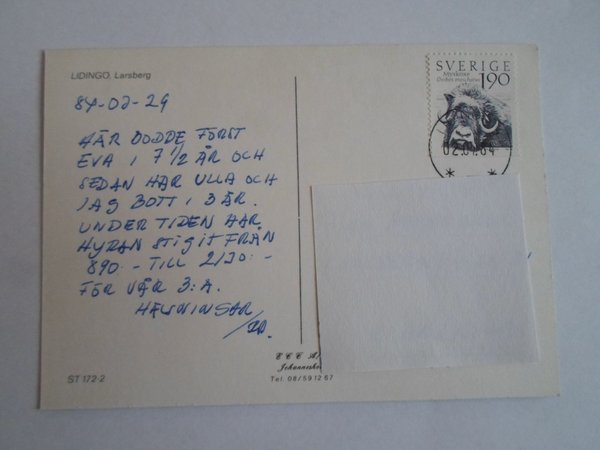 LIDINGÖ. Larsberg
84-02-29
HÄR BODDE FÖRST
EVA I 7 1/2 ÅR OCH
SEDAN HAR ULLA OCH
JAG BOTT I 3 ÅR.
UNDER TIDEN HAR
HYRAN STIGIT FRÅN
890:- TILL 2130:-
FÖR VÅR 3:A.
HÄLSNINGAR
SVERIGE
Myskoxe
Ovibos moschatus
1.90
ECC A/
Johannesho
Tel. 08/59 12 67
ST 172-2